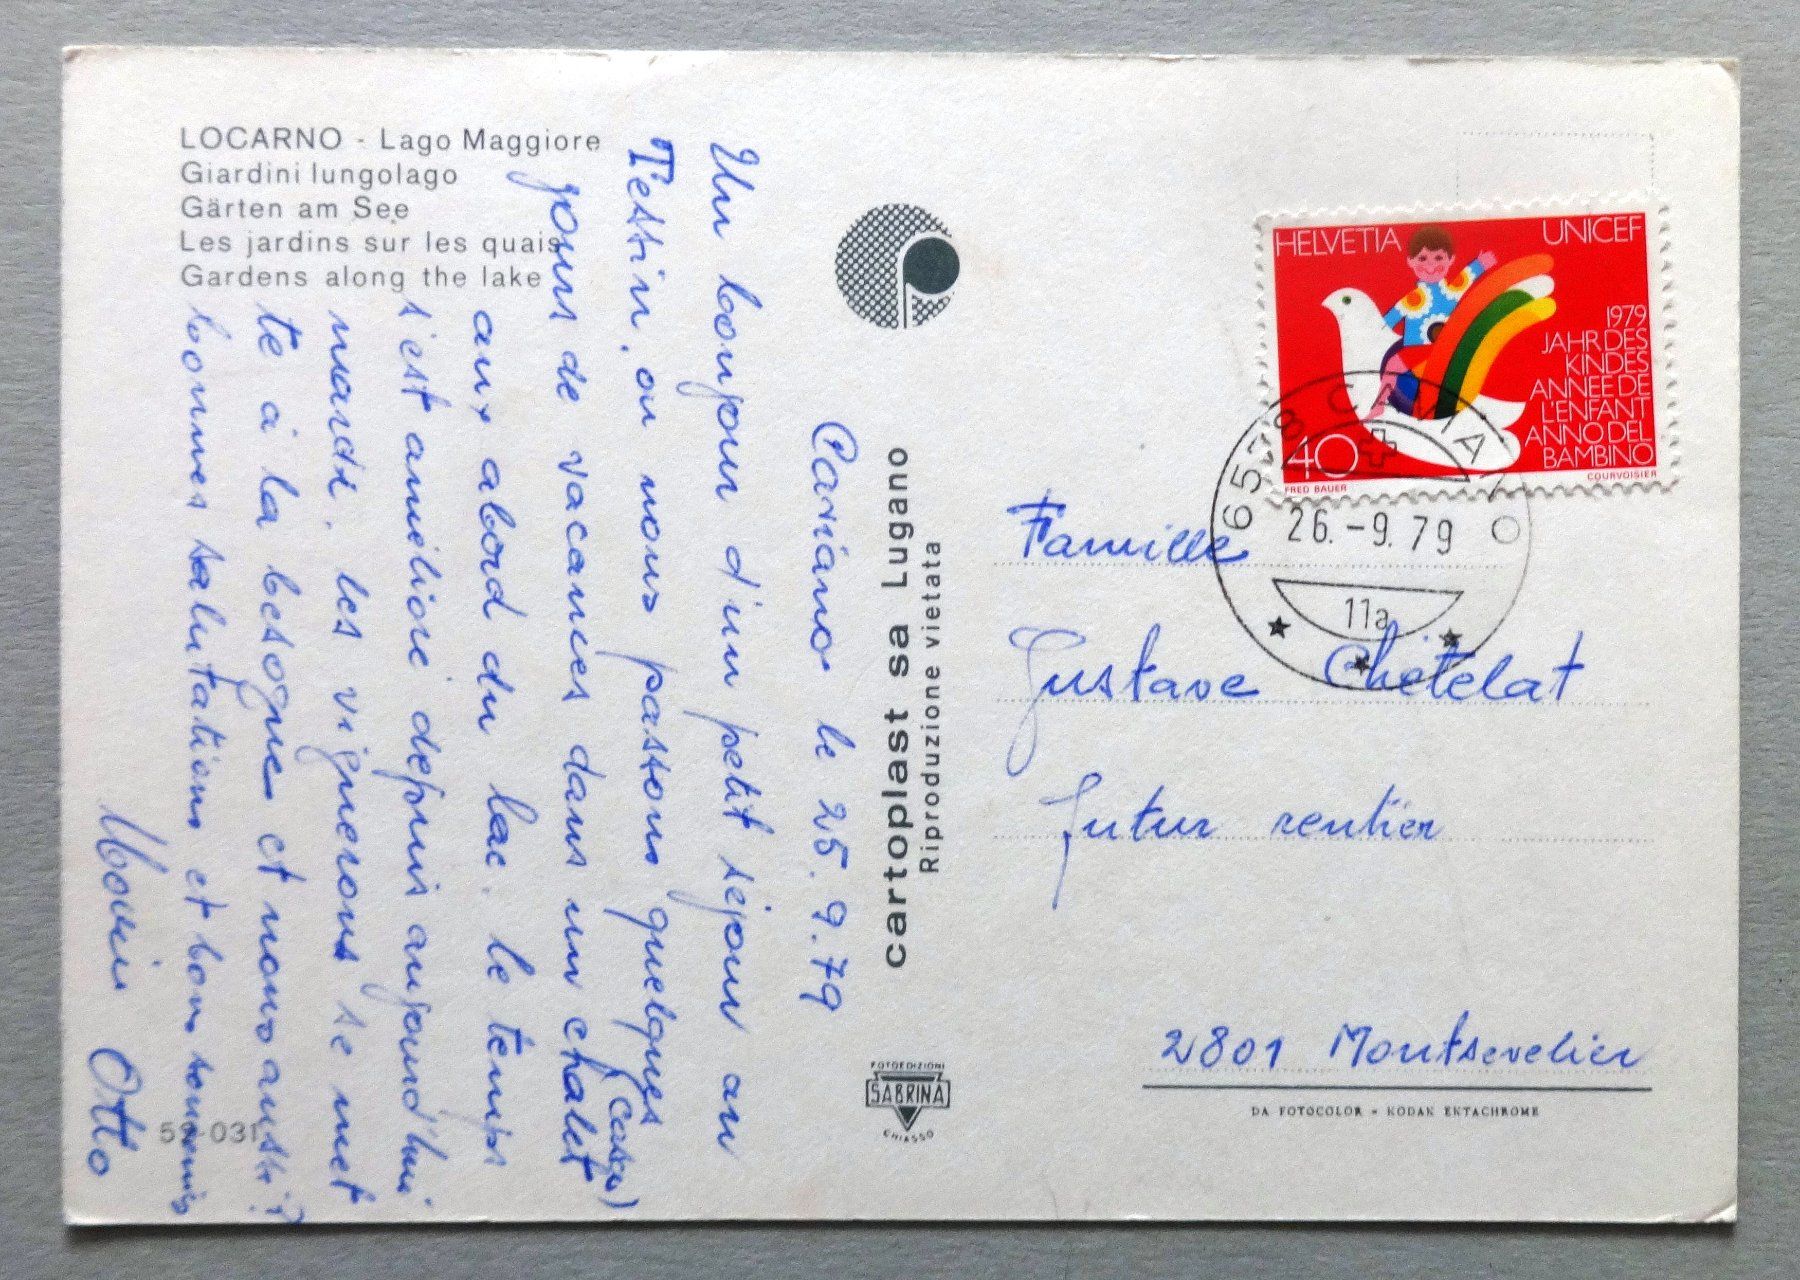 LOCARNO - Lago Maggiore
Giardini lungolago
Gärten am See
Les jardins sur les quais
Gardens along the lake
le 25.9.79
Un bonjour d'un petit séjour au
Tessin, ou nous passons quelques
jours de vacances dans un chalet
(Casa)
aux abord du lac. le temps
s'est amélioré depuis aujourd'hui
mardi. les vignerons se met
te à la besogne et nous aussi?
bonnes salutations et bon
Otto
59-031
cartoplast sa Lugano
Riproduzione vietata
FOTOEDIZIONI
SABRINA
CHIASSO
HELVETIA
UNICEF
1979
JAHR DES
KINDES
ANNEE DE
L'ENFANT
ANNO DEL
BAMBINO
40
FRED BAUER
COURVOISIER
26.-9.79
11a
Famille
Gustave Chételat
futur rentier
2801 Montsevelier
DA FOTOCOLOR - KODAK EKTACHROME